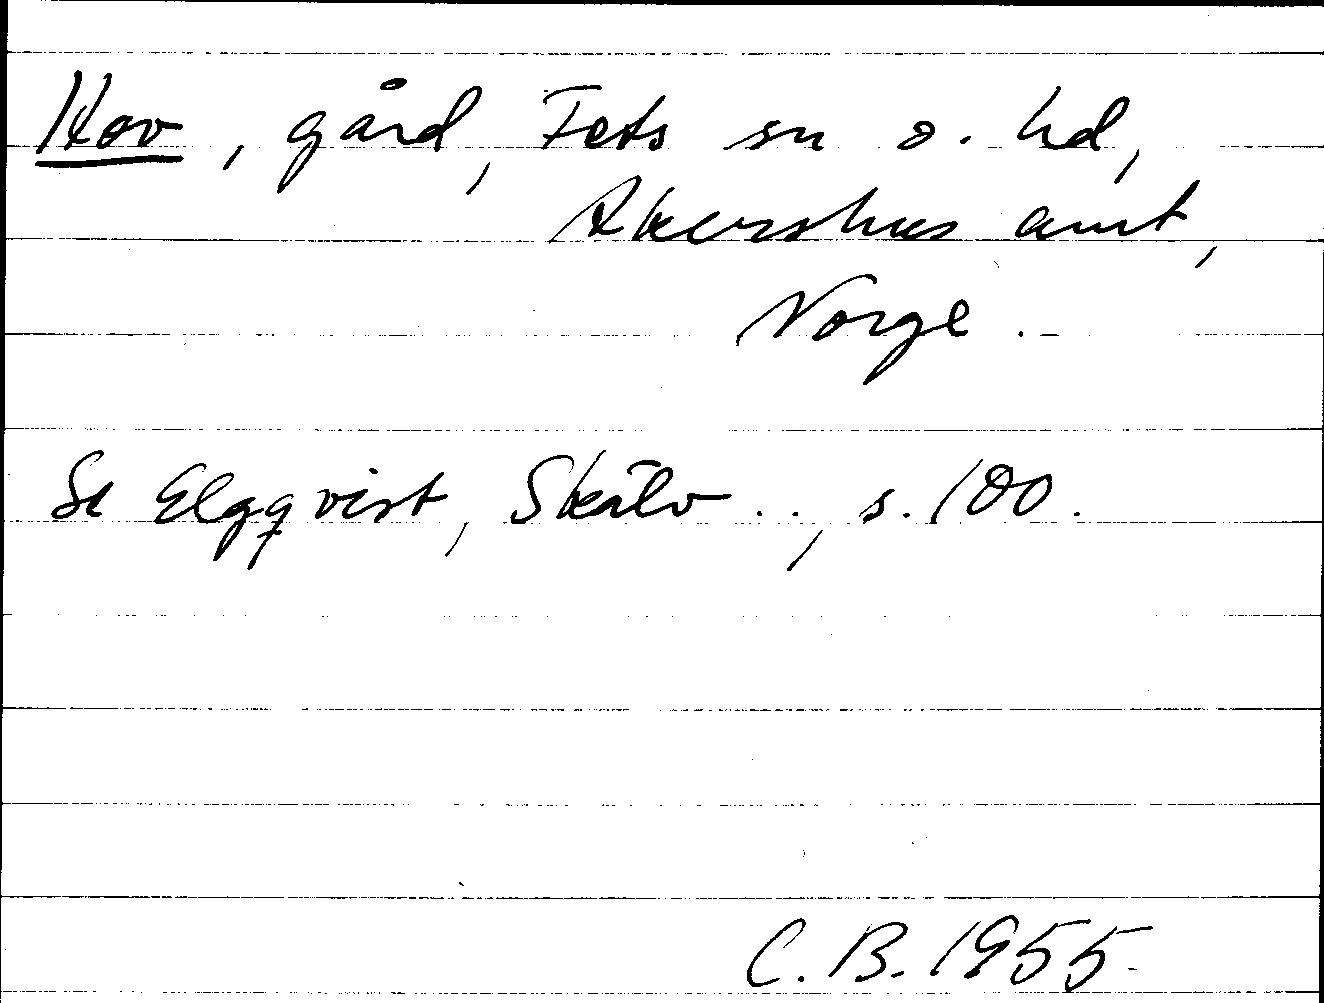 Hov, gård, Fets sn o. hd,
Akershus amt,
Norge.
Se Elgqvist, Skälv.., s. 100.
C. B. 1955.